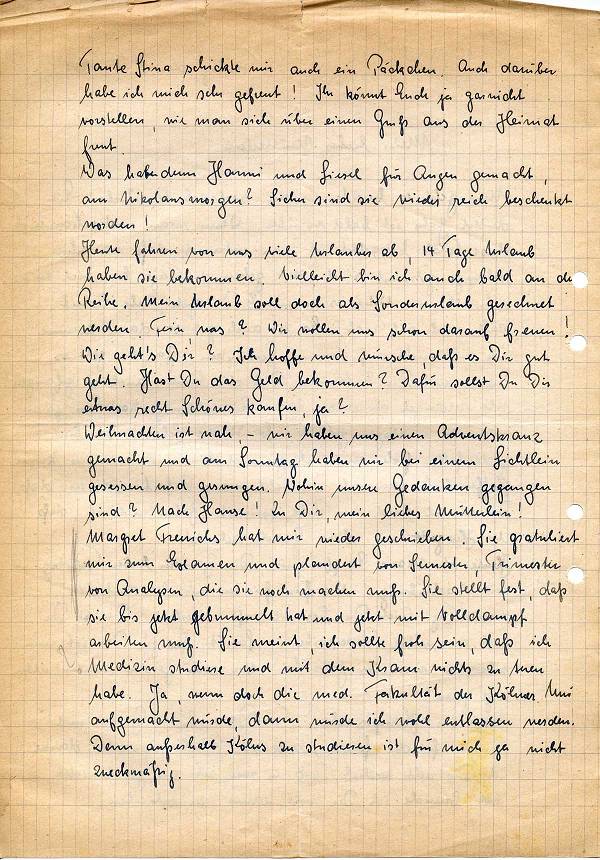 Tante Stina schickte mir auch ein Päckchen. Auch darüber
habe ich mich sehr gefreut! Ihr könnt Euch ja garnicht
vorstellen, wie man sich über einen Gruß aus der Heimat
freut.
Was haben denn Hanni und Liesel für Augen gemacht,
am Nikolausmorgen? Sicher sind sie wieder reich beschenkt
worden!
Heute fahren von uns viele Urlauber ab, 14 Tage Urlaub
haben sie bekommen. Vielleicht bin ich auch bald an der
Reihe. Mein Urlaub soll doch als Sonderurlaub gerechnet
werden. Fein, was? Wir wollen uns schon darauf freuen!
Wie geht's Dir? Ich hoffe und wünsche, daß es Dir gut
geht. Hast Du das Geld bekommen? Dafür sollst Du Dir
etwas recht Schönes kaufen, ja?
Weihnachten ist nah, – wir haben uns einen Adventskranz
gemacht und am Sonntag haben wir bei einem Lichtlein
gesessen und gesungen. Wohin unsere Gedanken gegangen
sind? Nach Hause! Zu Dir, mein liebes Mütterlein!
Margret Frerichs hat mir wieder geschrieben. Sie gratuliert
mir zum Examen und plaudert von Semester, Trimester
von Analysen, die sie noch machen muß. Sie stellt fest, daß
sie bis jetzt gebummelt hat und jetzt mit Volldampf
arbeiten muß. Sie meint, ich sollte froh sein, daß ich
Medizin studiere und mit dem Kram nichts zu tuen
habe. Ja, wenn doch die med. Fakultät der Kölner Uni
aufgemacht würde, dann würde ich wohl entlassen werden.
Denn außerhalb Kölns zu studieren ist für mich ja nicht
zweckmäßig.